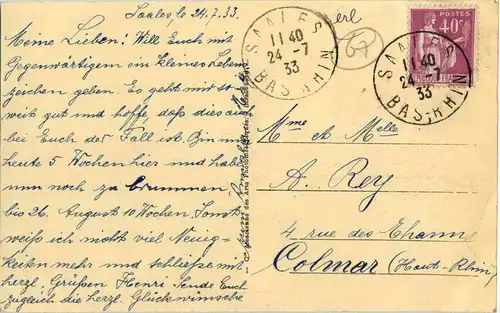 Saales le 24.7.33.
Meine Lieben! Will Euch mit
Gegenwärtigem ein kleines Lebens
zeichen geben. Es geht mir so
weit gut und hoffe, daß dies auch
bei Euch der Fall ist. Bin nun
heute 5 Wochen hier und hab
nun noch zu brummen,
bis 26. August 10 Wochen. Sonst
weiß ich nicht viel Neuig-
keiten mehr und schließe mit
herzl. Grüßen Henri Sende Euch
zugleich die herzl. Glückwünsche
67
SAALES
11 40
24 -7
33
BAS-RHIN
POSTES
40c
SAALES
11 40
24 -7
33
BAS-RHIN
Mme et Melle
A. Rey
4 rue des
Colmar (Haut-Rhin)